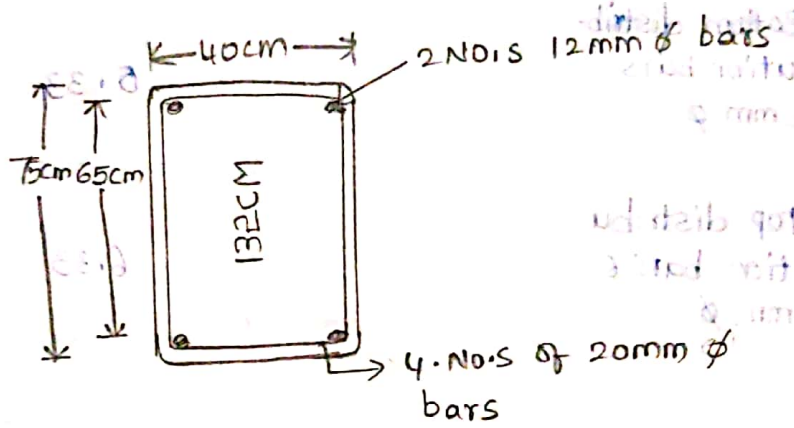 40cm
2 NO.S 12mm ϕ bars
75cm 65cm
132CM
4.No.S of 20mm ϕ
bars